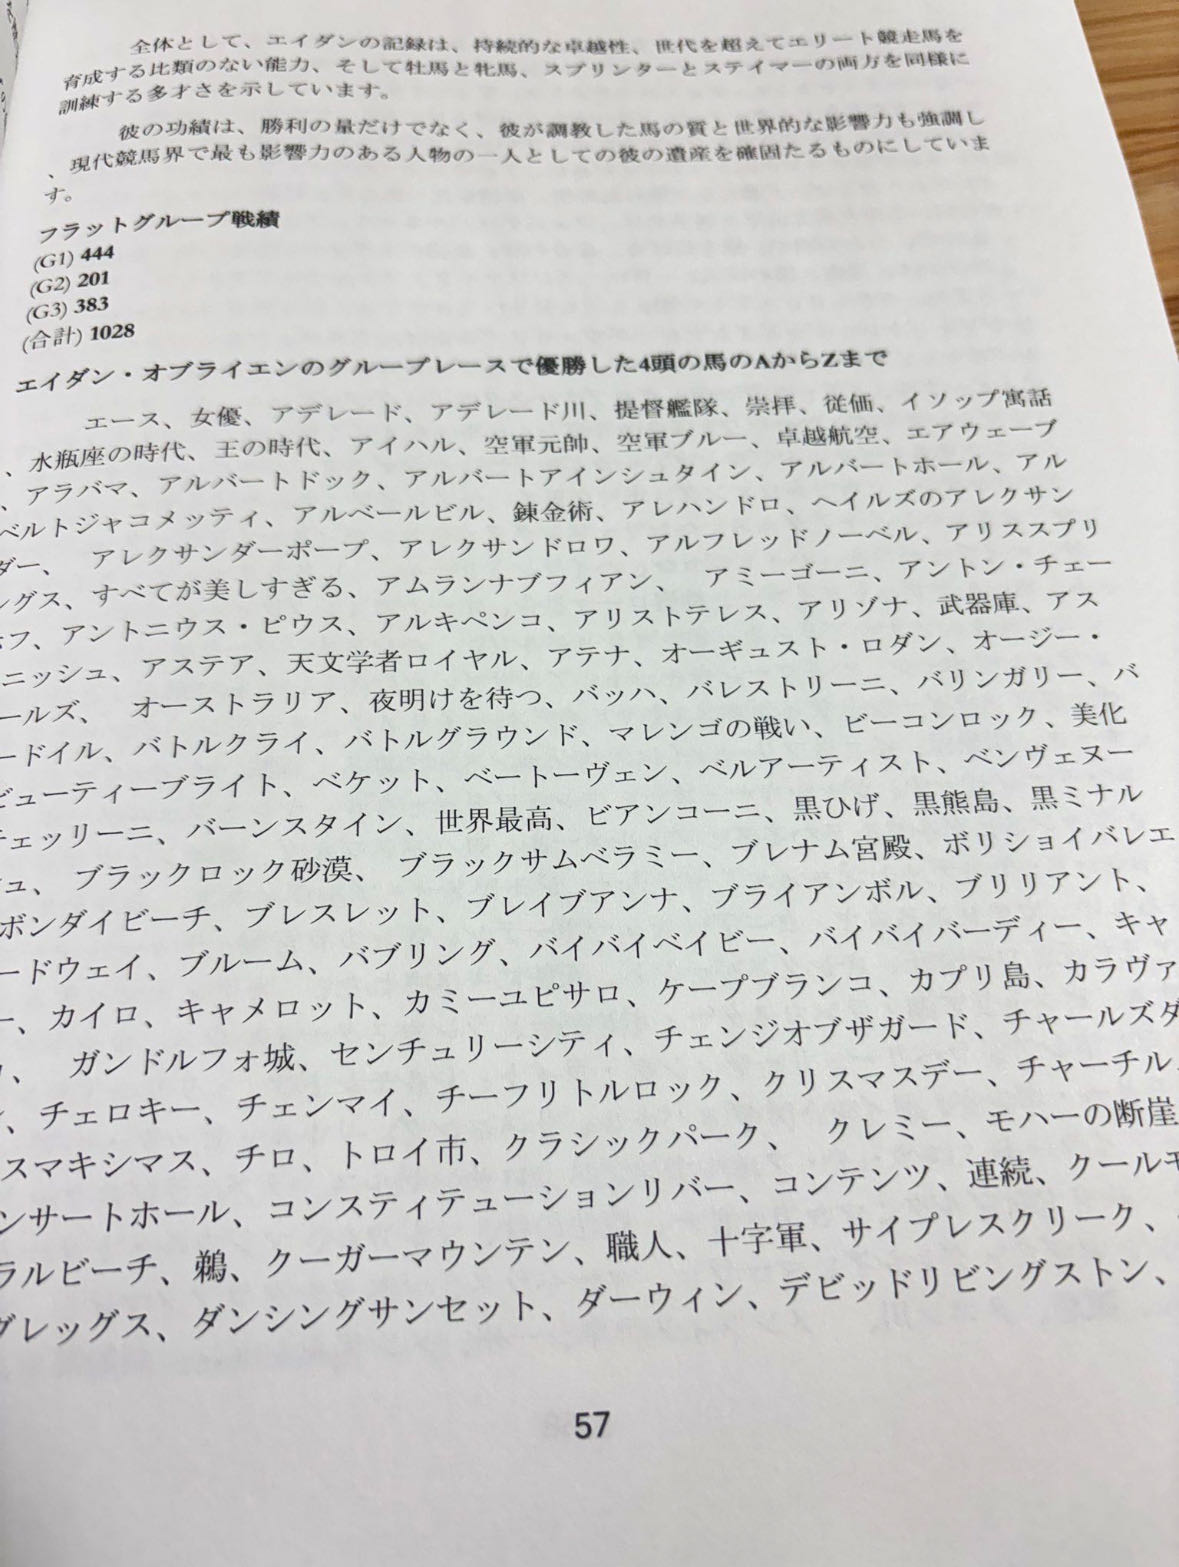 全体として、エイダンの記録は、持続的な卓越性、世代を超えてエリート競走馬を
育成する比類のない能力、そして牡馬と牝馬、スプリンターとステイマーの両方を同様に
訓練する多才さを示しています。
彼の功績は、勝利の量だけでなく、彼が調教した馬の質と世界的な影響力も強調し
、現代競馬界で最も影響力のある人物の一人としての彼の遺産を確固たるものにしていま
す。
フラットグループ戦績
(G1) 444
(G2) 201
(G3) 383
(合計) 1028
エイダン・オブライエンのグループレースで優勝した4頭の馬のAからZまで
エース、女優、アデレード、アデレード川、提督艦隊、崇拝、従価、イソップ寓話
、水瓶座の時代、王の時代、アイハル、空軍元帥、空軍ブルー、卓越航空、エアウェーブ
、アラバマ、アルバートドック、アルバートアインシュタイン、アルバートホール、アル
ベルトジャコメッティ、アルベールビル、錬金術、アレハンドロ、ヘイルズのアレクサン
ダー、 アレクサンダーポープ、アレクサンドロワ、アルフレッドノーベル、アリススプリ
ングス、すべてが美しすぎる、アムランナブフィアン、 アミーゴーニ、アントン・チェー
ホフ、アントニウス・ピウス、アルキペンコ、アリストテレス、アリゾナ、武器庫、アス
ニッシュ、アステア、天文学者ロイヤル、アテナ、オーギュスト・ロダン、オージー・
ールズ、 オーストラリア、夜明けを待つ、バッハ、バレストリーニ、バリンガリー、バ
ードイル、バトルクライ、バトルグラウンド、マレンゴの戦い、ビーコンロック、美化
ビューティーブライト、ベケット、ベートーヴェン、ベルアーティスト、ベンヴェヌー
チェッリーニ、バーンスタイン、世界最高、ビアンコーニ、黒ひげ、黒熊島、黒ミナル
ュ、 ブラックロック砂漠、 ブラックサムベラミー、ブレナム宮殿、ボリショイバレエ
ボンダイビーチ、ブレスレット、ブレイブアンナ、ブライアンボル、ブリリアント、
ードウェイ、ブルーム、バブリング、バイバイベイビー、バイバイバーディー、キャ
ー、カイロ、キャメロット、カミーユピサロ、ケープブランコ、カプリ島、カラヴァ
、 ガンドルフォ城、センチュリーシティ、チェンジオブザガード、チャールズダ
ン、チェロキー、チェンマイ、チーフリトルロック、クリスマスデー、チャーチル
スマキシマス、チロ、トロイ市、クラシックパーク、 クレミー、モハーの断崖
ンサートホール、コンスティテューションリバー、コンテンツ、連続、クールモ
ラルビーチ、鵜、クーガーマウンテン、職人、十字軍、サイプレスクリーク、
グレッグス、ダンシングサンセット、ダーウィン、デビッドリビングストン、
57